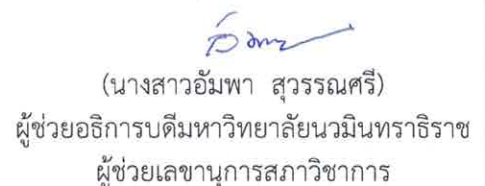 (นางสาวอัมพา สุวรรณศรี)
ผู้ช่วยอธิการบดีมหาวิทยาลัยนวมินทราธิราช
ผู้ช่วยเลขานุการสภาวิชาการ